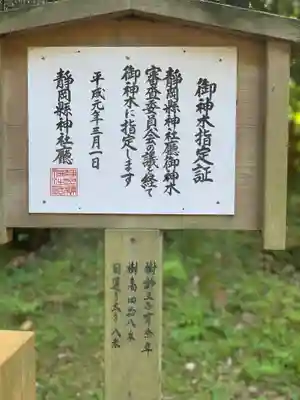 御神木指定証
静岡縣神社廳御神木
審査委員会の議を経て
御神木に指定します
平成元年三月一日
静岡縣神社廳
樹齢五百有余年
樹高四拾八米
目通り太さ八米